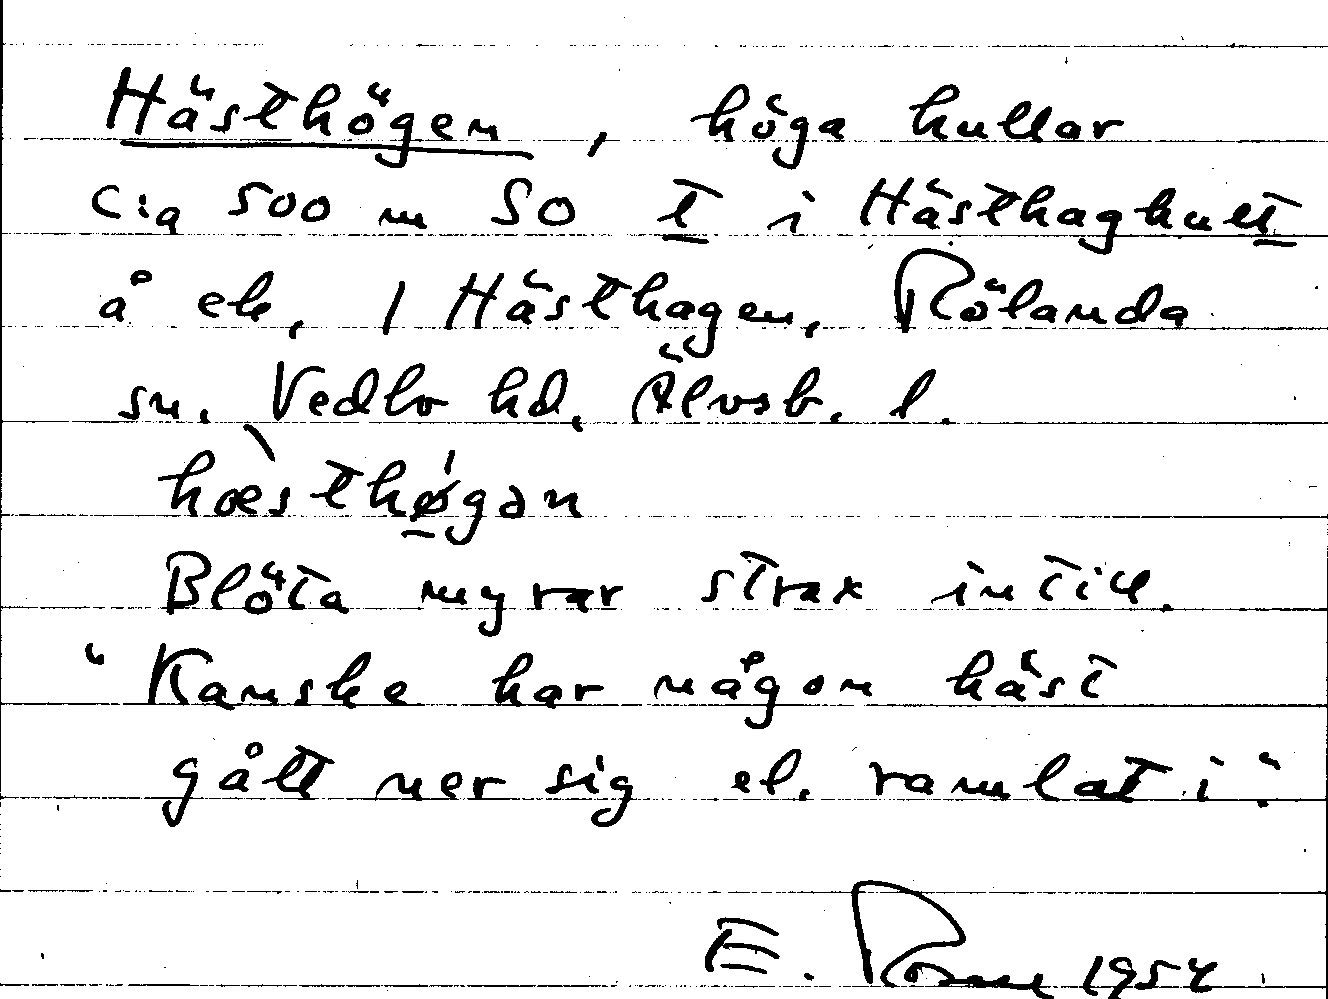 Hästhögen, höga kullar
c:a 500 m SO t i Hästhagkult
å ek. 1 Hästhagen, Rölanda
sn. Vedbo hd. Älvsb. l.
hæ̀sthǿ̜gən
Blöta myrar strax intill.
"Kanske har någon häst
gått ner sig el. ramlat i."
E. 1954